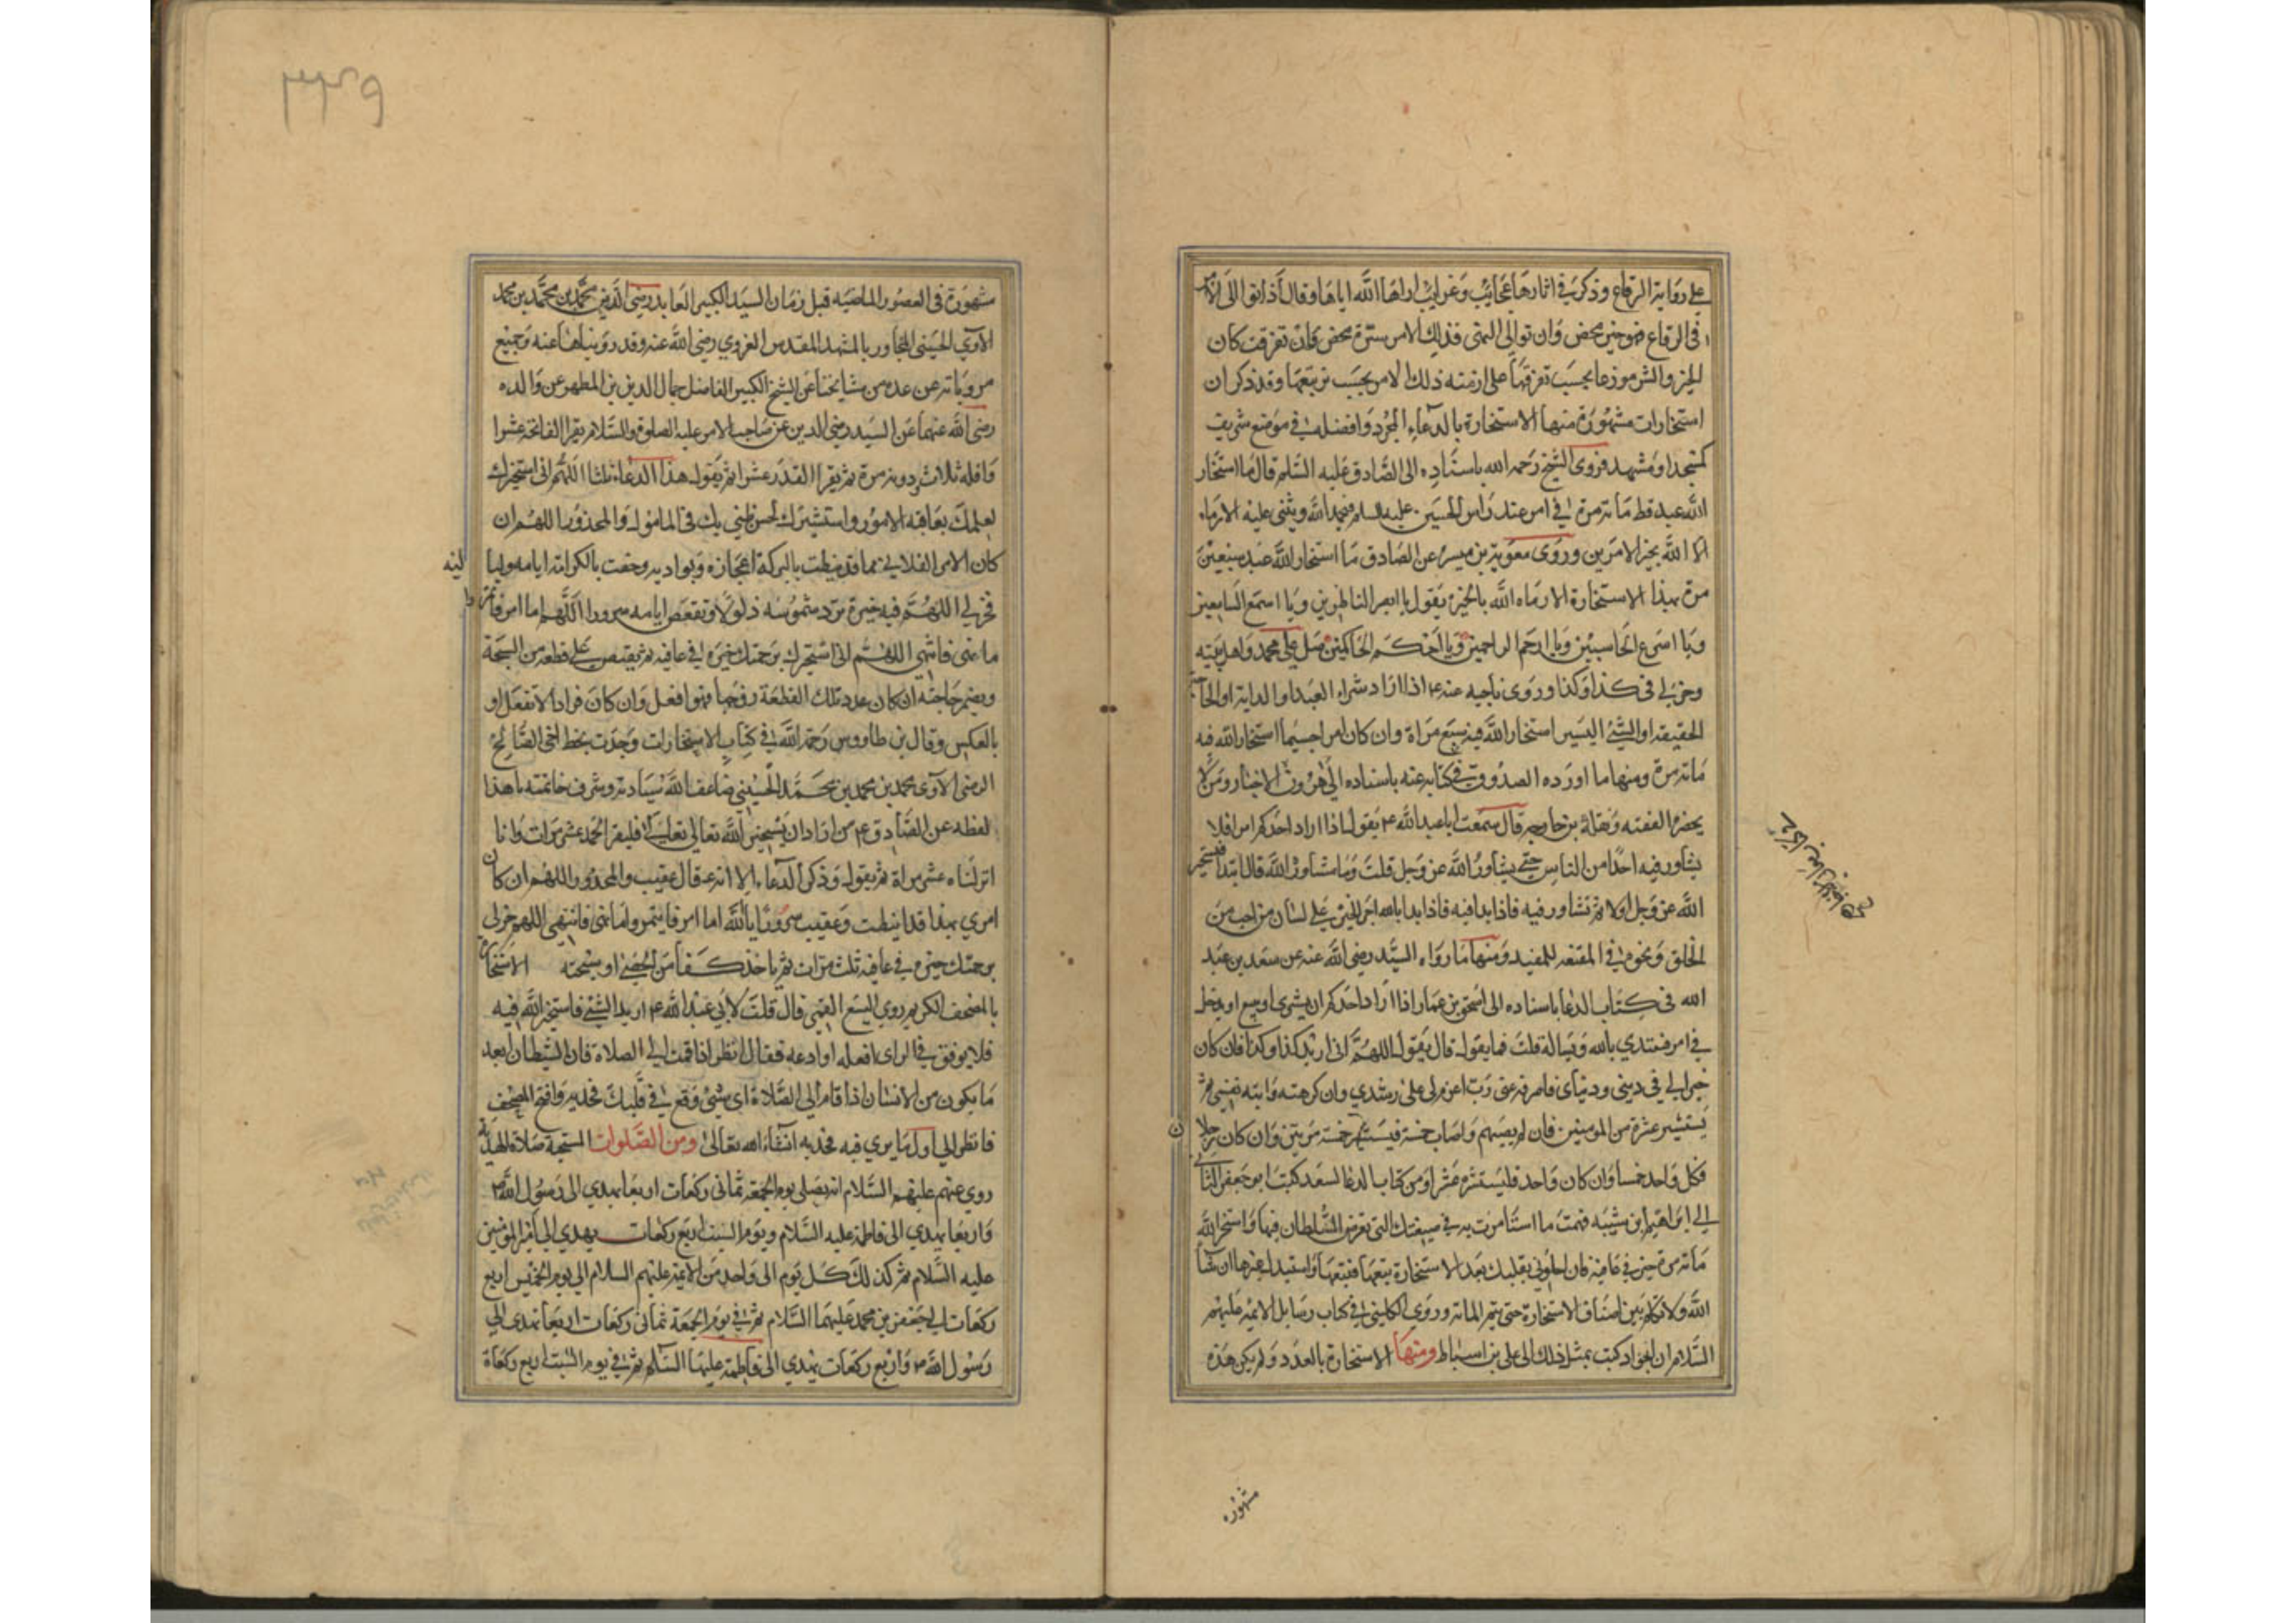 على رواية الرقاع وذكر في اثارها عجايب وغرايب اراها الله اياها وقال اذا توالى الامر
في الرقاع فهو خير محض وان توالى النهى فذلك الامر شر محض وان تفرقت كان
الخير والشر موزعا بحسب تفرقها على ازمنة ذلك الامر بحسب ترتبها وقد ذكر ان
استخارات مشهورة منها الاستخارة بالدعاء المجرد وافضله في موضع شريف
كمسجد او مشهد فروى الشيخ رحمه الله باسناده الى الصادق عليه السلم قال ما استخار
الله عبد قط مائة مرة في امر عند راس الحسين عليه السلم فيحمد الله ويثنى عليه الا رماه
الله بخير الامرين وروى معوية بن ميسره عن الصادق ما استخار الله عبد سبعين
مرة بهذا الاستخارة الا رماه الله بالخيرة يقول يا ابصر الناظرين ويا اسمع السامعين
ويا اسرع الحاسبين ويا ارحم الراحمين ويا احكم الحاكمين صل على محمد واهل بيته
وخر لي في كذا وكذا وروى ناجيه عنه ع اذا اراد شراء العبد او الدابة او الحاجة
الخفيفه او الشئ اليسير استخار الله فيه سبع مراة وان كان امرا جسيما استخار الله فيه
مائة مرة ومنها ما اورده الصدوق في كتابه عنه باسناده الى هرون بن
خارجه قال سمعت ابا عبد الله ع يقول اذا اراد احدكم امرا فلا
يشاور فيه احدا من الناس حتى يشاور الله عز وجل قلت وما مشاورة الله قال يبتدا فيستخير
الله عز وجل اولا ثم يشاور فيه فاذا بدا فيه بالله اجرى الخير على لسان من احب من
الخلق ونحوه في المقنعه للمفيد ومنها ما رواه السيد رضي الله عنه عن سعد بن عبد
الله في كتاب الدعا باسناده الى اسحق بن عمار اذا اراد احدكم ان يشترى او يبيع او يدخل
في امر فيبتدي بالله ويساله قلت فما يقول قال يقول اللهم انى اريد كذا وكذا فان كان
خيرا لي في ديني ودنياى فاصرفه عنى رب اعزم لى على رشدي وان كرهته وابته نفسي ثم
يستشير عشرة من المومنين فان لم يصبهم واصاب خمسة فيستشير خمسة مرتين وان كان رجلا
فكل واحد خمسا وان كان واحد فليستشره عشرا ومن كتاب الدعا لسعد كتب ابو جعفر الثانى
الى ابراهيم بن شيبه فهمت ما استامرت به في ضيعتك التي تعرض السلطان فيها واستخر الله
مائة مرة خيرة في عافية فان احلولى بقلبك بعد الاستخارة بيعها فبعها واستبدل غيرها ان شاء
الله ولا تتكلم بين اضعاف الاستخارة حتى يتم المائة وروى الكليني في كتاب رسايل الائمة عليهم
السلام ان الجواد كتب بمثل ذلك الى علي بن اسباط ومنها الاستخارة بالعدد ولم يكن هذه
مشهورة
٣٣٩
مشهورة في العصور الماضيه قبل زمان السيد الكبير العابد رضى الدين محمد بن محمد بن محمد
الآوي الحسيني المجاور بالمشهد المقدس الغروي رضي الله عنه وقد رويناها عنه وجميع
مروياته عن عدة من مشايخنا عن الشيخ الكبير الفاضل جمال الدين بن المطهر عن والده
رضي الله عنهما عن السيد رضي الدين عن صاحب الامر عليه الصلوة والسلام يقرا الفاتحة عشرا
واقله ثلاث ودونه مرة ثم يقرا القدر عشرا ثم يقول هذا الدعاء ثلثا اللهم انى استخيرك
لعلمك بعاقبه الامور واستشيرك لحسن ظني بك في المامول والمحذور اللهم ان
كان الامر الفلانى مما قد نيطت بالبركة اعجازه وبواديه وحفت بالكرامة ايامه ولياليه
فخر لي اللهم فيه خيرة ترد شموسه ذلولا وتقعص ايامه سرورا اللهم اما امر فاتمر
ما نهى فانتهى اللهم انى استخيرك برحمتك خيرة في عافيه ثم يقبض على قطعة من السبحة
ويضمر حاجته ان كان عدد تلك القطعة زوجا فهو افعل وان كان فرادا لا تفعل او
بالعكس وقال بن طاووس رحمه الله في كتاب الاستخارات وجدت بخط اخى الصالح
الرضي الآوى محمد بن محمد بن محمد الحسيني ضاعف الله سيادته وشرف خاتمته ما هذا
لفظه عن الصادق ع من اراد ان يستخير الله تعالى فليقرا الحمد عشر مرات وانا
انزلناه عشر مراة ثم يقول وذكر الدعاء الا انه قال عقيب والمحذور اللهم ان كان
امري هذا قد نيطت وعقيب سرورا يا الله اما امر فايتمر واما نهى فانتهى اللهم خر لي
برحمتك خيرة في عافيه ثلث مرات ثم ياخذ كفا من الحصى او سبحته الاستخارة
بالمصحف الكريم روي اليسع القمي قال قلت لابي عبد الله ع اريد الشئ فاستخير الله فيه
فلا يوفق في الراى افعله او ادعه فقال انظر اذا قمت الى الصلاة فان الشيطان ابعد
ما يكون من الانسان اذا قام الى الصلاة اى شئ وقع في قلبك فخذ به وافتح المصحف
فانظر الى اول ما يرى فيه فخذ به انشاء الله تعالى ومن الصلوات المستحبة صلاة الهدية
روي عنهم عليهم السلام انه يصلي يوم الجمعة ثمانى ركعات اربعا يهدي الى رسول الله ص
واربعا يهدي الى فاطمة عليه السلام ويوم السبت اربع ركعات يهدي الى امير المومنين
عليه السلام ثم كذلك كل يوم الى واحد من الائمة عليهم السلام الى يوم الخميس اربع
ركعات الى جعفر بن محمد عليهما السلام ثم في يوم الجمعة ثمانى ركعات اربعا يهدى الى
رسول الله ص واربع ركعات يهدي الى فاطمة عليها السلم ثم في يوم السبت اربع ركعاة